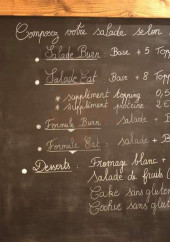 Composez votre salade selon
Salade Burn : Base + 5 Topp
Salade Eat : Base + 8 Top
* supplément topping 0,5
* supplément protéine 2€
Formule Burn : salade + B
Formule Eat : salade + B
Desserts : Fromage blanc +
Salade de fruits (
Cake sans gluten
Cookie sans glut